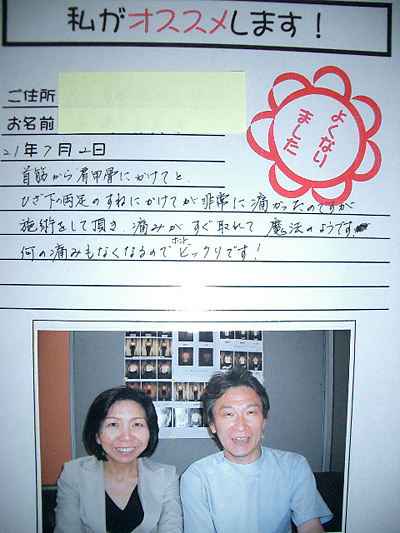 私がオススメします!
ご住所
お名前
よくなり
ました
21年7月2日
首筋から肩甲骨にかけてと、
ひざ下の両足のすねにかけてが非常に痛かったのですが
施術をして頂き、痛みがすぐ取れて魔法のようです。
ホント
何の痛みもなくなるのでビックリです!